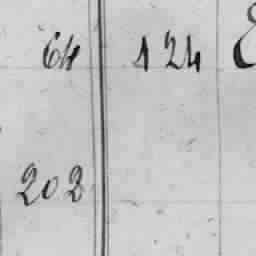 64 124
202